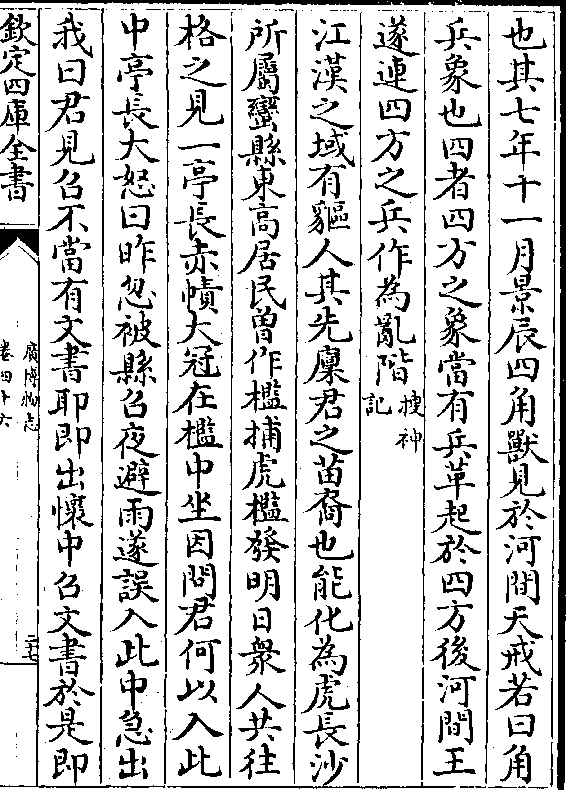 也其七年十一月景辰四角獸見於河間天戒若曰角
兵象也四者四方之象當有兵革起於四方後河間王
遂連四方之兵作為亂階搜神記
江漢之域有貙人其先廩君之苗裔也能化為虎長沙
所屬蠻縣東高居民曽作檻捕虎檻發明日衆人共往
格之見一亭長赤幘大冠在檻中坐因問君何以入此
中亭長大怒曰昨忽被縣召夜避雨遂誤入此中急出
我曰君見召不當有文書耶即出懷中召文書於是即
欽定四庫全書
廣博物志
卷四十六
二七